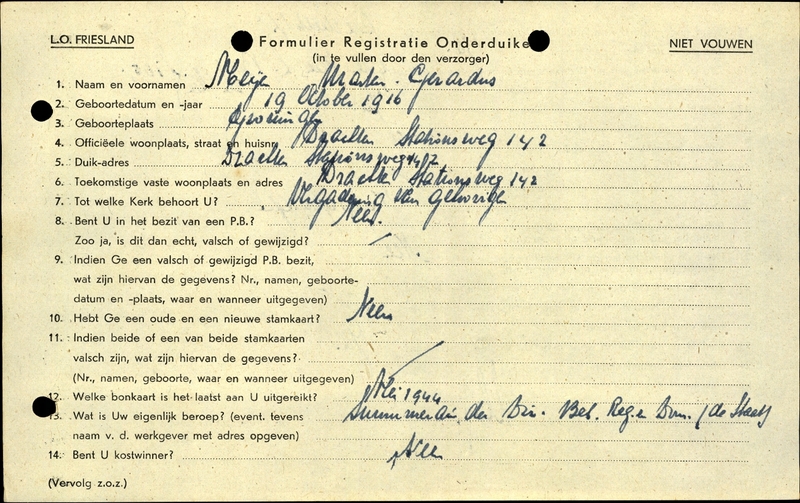 L.O. FRIESLAND
Formulier Registratie Onderduike
NIET VOUWEN
(in te vullen door den verzorger)
1. Naam en voornamen Meije Marten Gerardus
2. Geboortedatum en -jaar 19 October 1916
3. Geboorteplaats Groningen
4. Officiëele woonplaats, straat en huisnr. Drachten Stationsweg 142
5. Duik-adres Drachten Stationsweg 142
6. Toekomstige vaste woonplaats en adres Drachten Stationsweg 142
7. Tot welke Kerk behoort U? Vergadering van geloovigen
8. Bent U in het bezit van een P.B.? Neen.
Zoo ja, is dit dan echt, valsch of gewijzigd? —
9. Indien Ge een valsch of gewijzigd P.B. bezit,
wat zijn hiervan de gegevens? Nr., namen, geboorte-
datum en -plaats, waar en wanneer uitgegeven)
10. Hebt Ge een oude en een nieuwe stamkaart? Neen
11. Indien beide of een van beide stamkaarten
valsch zijn, wat zijn hiervan de gegevens? —
(Nr., namen, geboorte, waar en wanneer uitgegeven)
12. Welke bonkaart is het laatst aan U uitgereikt? Mei 1944
13. Wat is Uw eigenlijk beroep? (event. tevens der Dir. Bel. Reg. en Dom. (de Staat)
naam v. d. werkgever met adres opgeven)
14. Bent U kostwinner? Neen
(Vervolg z.o.z.)